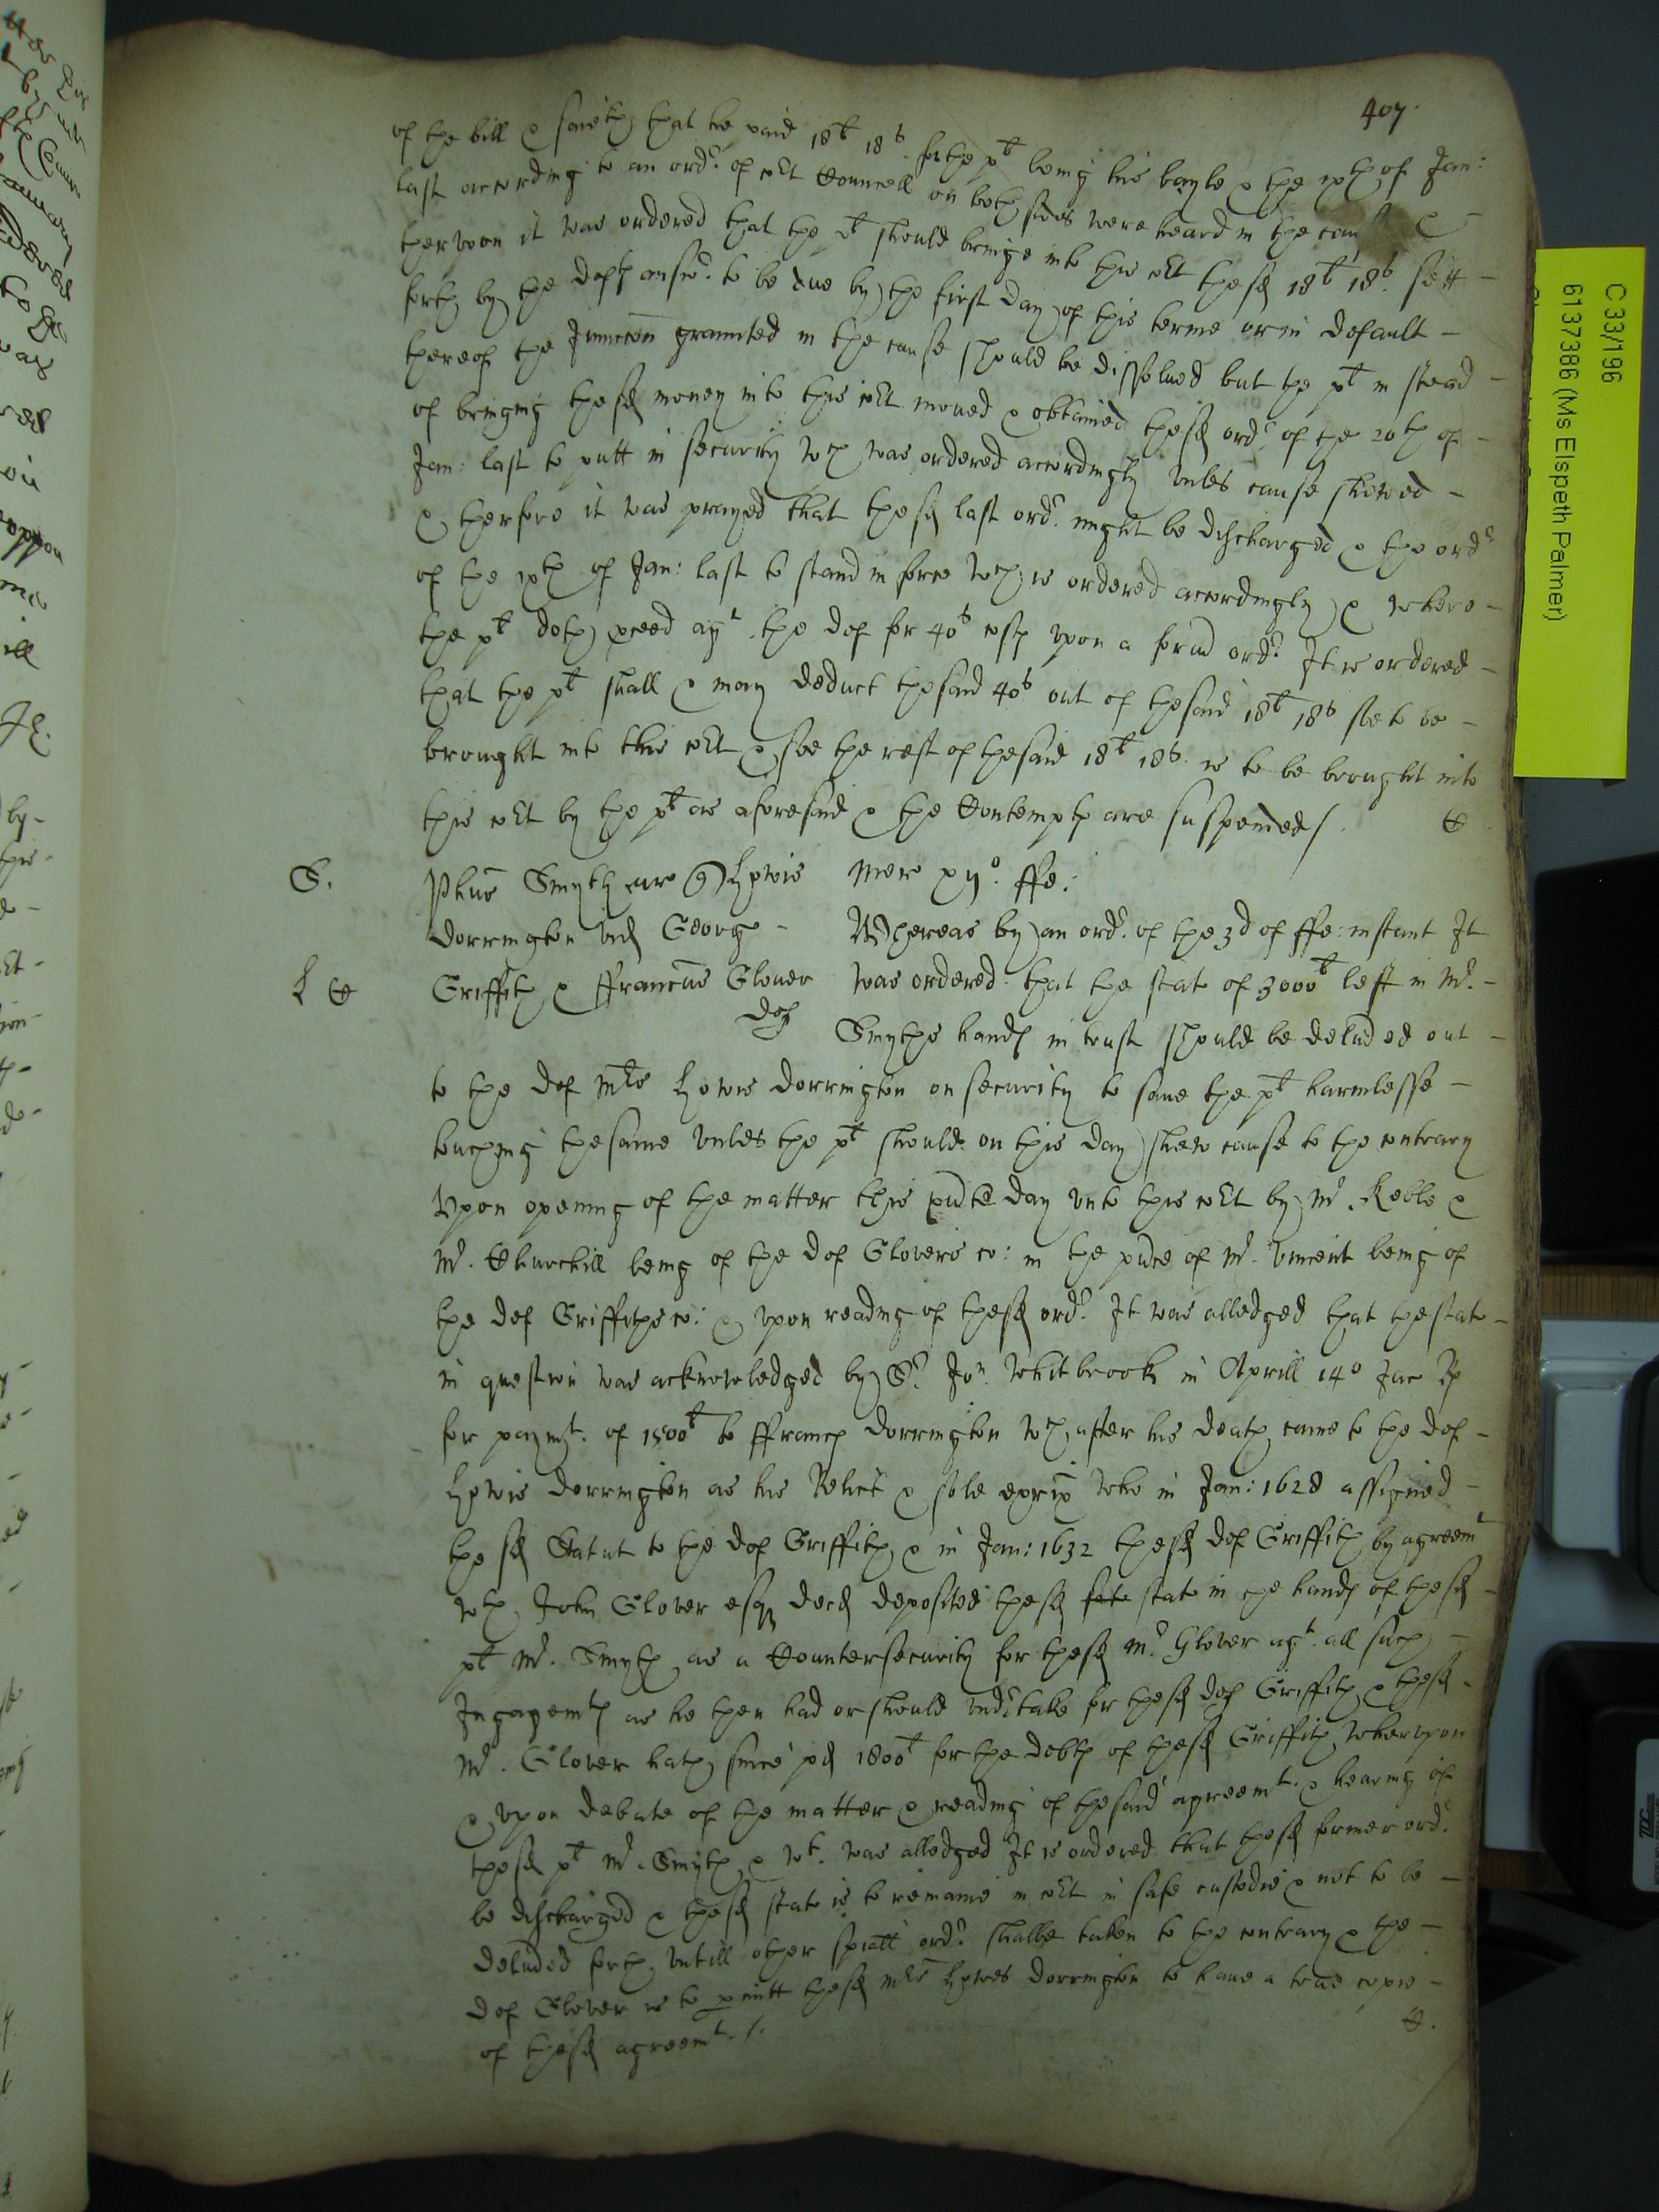 407.
of the bill & saieth that he paid 18l 18s for the pt being his bayle & the ixth of Jan:
last according to an ordr. of cort Councell on both sides were heard in the
therupon it was ordered that the pt should bringe into this cort the sd 18l 18s sett
forth by the defts answr. to be due by the first day of this terme or in default
thereof the Jniunccon graunted in the cause should be dissolued but the pt in stead
of bringing the sd money into this cort moued & obtained the sd ordr of the 20th of
Jan: last to putt in security wch was ordered accordingly vnles cause shewed
& therfore it was prayed that the sd last ordr. might be discharged & the ordr
of the ixth of Jan: last to stand in force wch is ordered accordingly & where
the pt doth pceed agt. the def for 40s costs vpon a formr ordr. It is ordered
that the pt shall & may deduct the said 40s out of the said 18l 18s soe to be
brought into this cort & soe the rest of the said 18l 18s is to be brought into
this cort by the pt as aforesaid & the Contempts are suspended /. C
S. Phus Smyth ar Lewis Merc xijo. ffe:
Dorrington vid George Whereas by an ordr. of the 3d of ffe: instant It
L C Griffith & ffranciscus Glouer was ordered that the state of 3000l left in Mr.
def Smythes hands in trust should be deliued out
to the def Mris Lewis Dorrington on security to saue the pt harmlesse
touching the same vnles the pt should on this day shew cause to the contrary
Vpon opening of the matter this pnte day vnto this cort by Mr. Keble &
Mr. Churchill being of the def Glovers co: in the pnce of Mr. Vincent being of
the def Griffithes co: & vpon reading of the sd ordr. It was alledged that the state
in question was acknowledged by Sr. Jon. Whitbrooke in Aprill 14o Jac Rs
for paymt. of 1500l to ffrancis Dorrington wch after his death came to the def
Lewis Dorrington as his Relict & sole exrix who in Jan: 1628 assigned
the sd Statut to the def Griffith & in Jan: 1632 the sd def Griffith by agreemt
wth John Glover esqr decd deposited the sd state in the hands of the sd
pt Mr. Smyth as a Countersecurity for the sd Mr. Glover agt. all such
Ingagemts as he then had or should vndrtake for the sd def Griffith & the sd
Mr. Glover hath since pd 1800l for the debts of the sd Griffith wherupon
& vpon debate of the matter & reading of the said agreemt. & hearing of
the sd pt Mr. Smyth & wt. was alledged It is ordered that the sd former ordr.
be discharged & the sd state is to remaine in cort in safe custodie & not to be
deliued forth vntill other spiall ordr. shalbe taken to the contrary & the
def Glover is to pmitt the sd Mris Lewes Dorrington to haue a true copie
of the sd agreemt. /. C.
C 33/196
6137386 (Ms Elspeth Palmer)